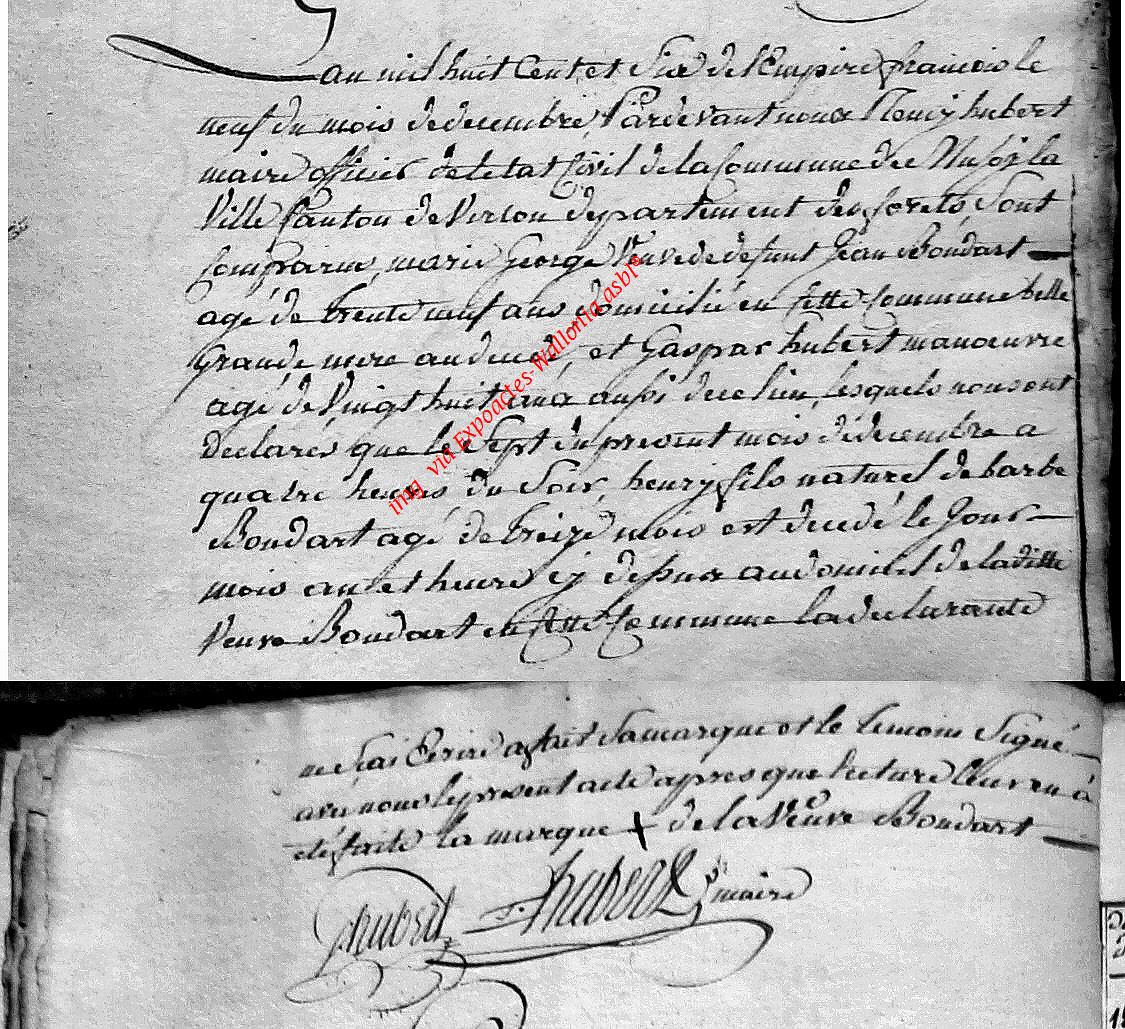 L'an mil huit Cent et Six de l'Empire francois le
neuf du mois de decembre, Pardevant nous Henry hubert
maire officier de letat Civil de la Commune de Mussy la
Ville Canton de Virton departement des forets, Sont
Comparue marie George Veuve de defunt Jean Bondart
agé de trente neuf ans domicilié en cette Commune belle
Grande mere au decedé, et Gaspar hubert manoeuvre
agé de Vingt huit ans aussi de ce lieu, lesquels nous ont
Declarés que le Sept du present mois de decembre a
quatre heures du Soir, henry fils naturel de barbe
Bondart agé de treize mois est decedé le Jour
mois an et heure cy dessus au domicil de la ditte
Veuve Bondart en cette Commune la declarante
ne Sai Ecrire a fait Sa marque et le temoin Signé
avec nous le present acte apres que lecture leur en à
été faite la marque + de la Veuve Bondart
hubert hubert maire
img via Expoactes-Wallonia asbl